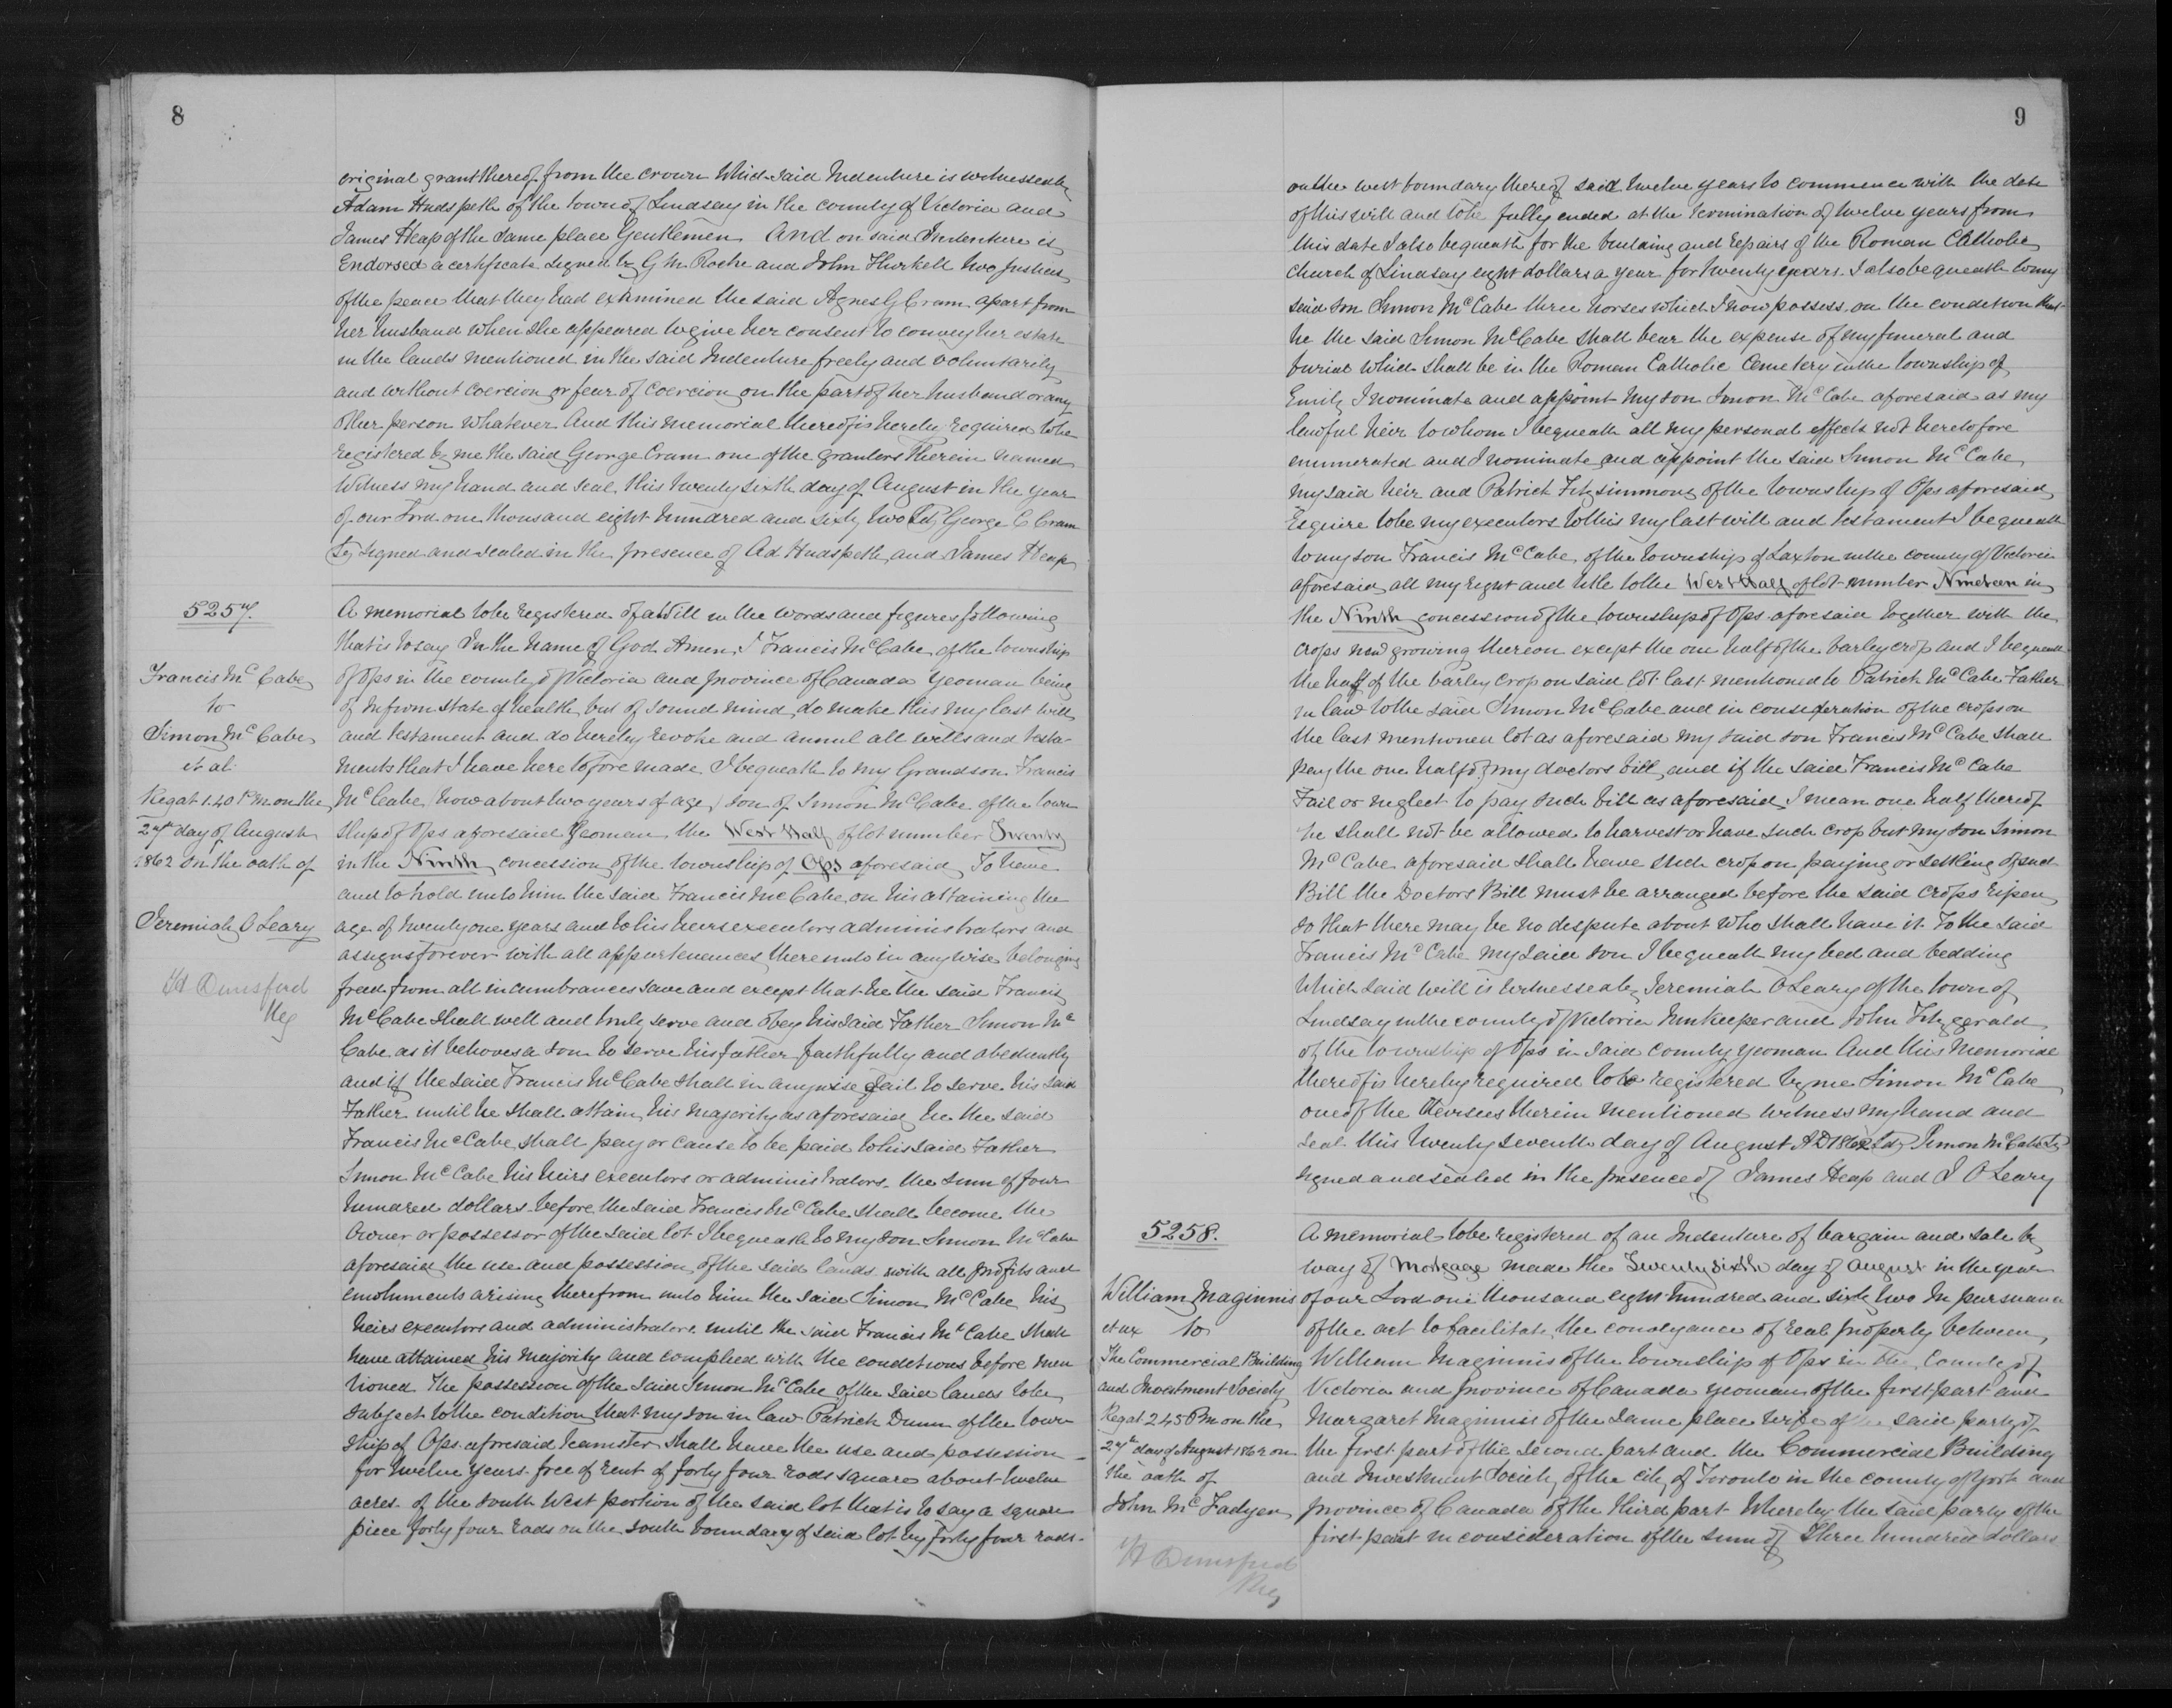 8
original grant thereof from the crown Which said Indenture is witnessed by
Adam Hudspeth of the town of Lindsay in the county of Victoria and
James Heap of the same place Gentlemen And on said Indenture is
Endorsed a certificate signed by G M Roche and John Thirkell two Justices
of the peace that they had examined the said Agnes G Cram apart from
her husband when she appeared to give her consent to convey her estate
in the lands mentioned in the said Indenture freely and voluntarily
and without coercion or fear of coercion on the part of her husband or any
other person whatever And this memorial thereof is hereby required to be
registered by me the said George Cram one of the grantors Therein named
Witness my hand and seal this twenty sixth day of August in the year
of our Lord one thousand eight hundred and sixty two George C Cram
signed and sealed in the presence of Ad Hudspeth and James Heap
5257.
Francis McCabe
to
Simon McCabe
et al
Reg at 1.40 PM on the
27th day of August
1862 on the oath of
Jeremiah O Leary
H Dunsford
Reg
A memorial to be registered of a Will in the words and figures following
that is to say In the name of God Amen, I Francis McCabe of the township
of Ops in the county of Victoria and province of Canada Yeoman being
of infirm state of health but of sound mind, do make this my last will
and testament and do hereby revoke and annul all wills and testa-
ments that I have heretofore made I bequeath to my Grandson Francis
McCabe (now about two years of age) son of Simon McCabe of the town
ship of Ops aforesaid Yeoman the West Half of lot number Twenty
in the Ninth concession of the township of Ops aforesaid To have
and to hold unto him the said Francis McCabe on his attaining the
age of twenty one years and to his heirs executors administrators and
assigns forever with all appurtenances thereunto in any wise belonging
freed from all incumbrances save and except that he the said Francis
McCabe shall well and truly serve and obey his said Father Simon Mc
Cabe as it behoves a son to serve his father faithfully and obediently
and if the said Francis McCabe shall in anywise fail to serve his said
Father until he shall attain his majority as aforesaid he the said
Francis McCabe shall pay or cause to be paid to his said Father
Simon McCabe his heirs executors or administrators the sum of four
hundred dollars before the said Francis McCabe shall become the
Owner or possessor of the said lot I bequeath to my son Simon McCabe
aforesaid the use and possession of the said lands with all profits and
emoluments arising therefrom unto him the said Simon McCabe his
heirs executors and administrators until the said Francis McCabe shall
have attained his majority and complied with the conditions before men
tioned The possession of the said Simon McCabe of the said lands to be
subject to the condition that my son in law Patrick Dunn of the town
ship of Ops aforesaid teamster shall have the use and possession
for twelve years free of rent of forty four rods square about twelve
acres of the South West portion of the said lot that is to say a square
piece forty four rods on the south boundary of said lot by forty four rods
9
on the west boundary thereof said twelve years to commence with the date
of this will and to be fully ended at the termination of twelve years from
this date I also bequeath for the building and repairs of the Roman Catholic
Church of Lindsay eight dollars a year for twenty years. I also bequeath to my
said son Simon McCabe three horses which I now possess on the condition that
he the said Simon McCabe shall bear the expense of my funeral and
burial which shall be in the Roman Catholic Cemetery in the township of
Emily I nominate and appoint my son Simon McCabe aforesaid as my
lawful heir to whom I bequeath all my personal effects not heretofore
enumerated and I nominate and appoint the said Simon McCabe
my said heir and Patrick Fitzsimmons of the township of Ops aforesaid
Esquire to be my executors to this my last will and testament I bequeath
to my son Francis McCabe of the township of Laxton in the county of Victoria
aforesaid all my right and title to the West Half of lot number Nineteen in
the Ninth concession of the township of Ops aforesaid together with the
crops now growing thereon except the one half of the barley crop and I bequeath
the half of the barley crop on said lot last mentioned to Patrick McCabe Father
in law to the said Simon McCabe and in consideration of the crops on
the last mentioned lot as aforesaid my said son Francis McCabe shall
pay the one half of my doctors bill, and if the said Francis McCabe
Fail or neglect to pay such bill as aforesaid I mean one half thereof
he shall not be allowed to harvest or have such crop but my son Simon
McCabe aforesaid shall have such crop on paying or settling of such
Bill the Doctors Bill must be arranged before the said crops ripen
so that there may be no despute about who shall have it. To the said
Francis McCabe my said son I bequeath my bed and bedding
Which said will is witnessed by Jeremiah O Leary of the town of
Lindsay in the county of Victoria Innkeeper and John Fitzgerald
of the township of Ops in said county yeoman And this Memorial
thereof is hereby required to be registered by me Simon McCabe
one of the devisees therein mentioned witness my hand and
seal this twenty seventh day of August AD 1862 Simon McCabe
signed and sealed in the presence of James Heap and J O Leary
5258.
William Maginnis
et ux to
The Commercial Building
and Investment Society
Reg at 2.45 PM on the
27th day of August 1862 on
the oath of
John McFadyen
H Dunsford
Reg
A memorial to be registered of an Indenture of bargain and sale by
way of Mortgage made the Twenty sixth day of August in the year
of our Lord one thousand eight hundred and sixty two In pursuance
of the act to facilitate the conveyance of real property between
William Maginnis of the township of Ops in the County of
Victoria and province of Canada yeoman of the first part and
Margaret Maginniss of the same place wife of the said party of
the first part of the second part and the Commercial Building
and Investment Society of the city of Toronto in the county of York and
province of Canada of the third part Whereby the said party of the
first part in consideration of the sum of Three hundred dollars